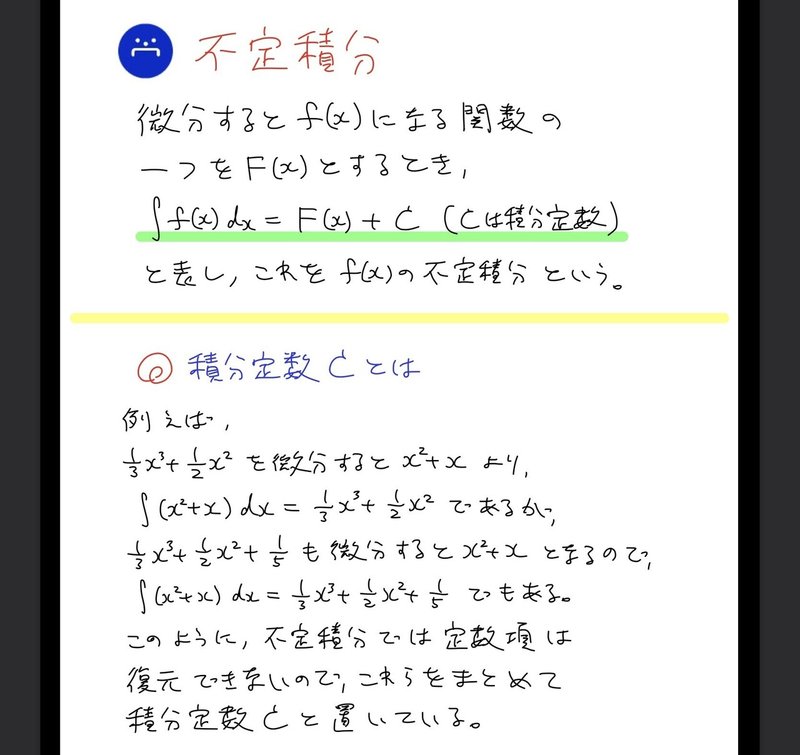 不定積分
微分するとf(x)になる関数の
一つをF(x)とするとき,
∫f(x)dx = F(x) + C (Cは積分定数)
と表し, これをf(x)の不定積分という。
積分定数Cとは
例えば,
1/3x³+1/2x² を微分すると x²+x より,
∫(x²+x)dx = 1/3x³+1/2x² であるが,
1/3x³+1/2x²+1/5 も微分すると x²+x となるので,
∫(x²+x)dx = 1/3x³+1/2x²+1/5 でもある。
このように, 不定積分では定数項は
復元できないので, これらをまとめて
積分定数Cと置いている。